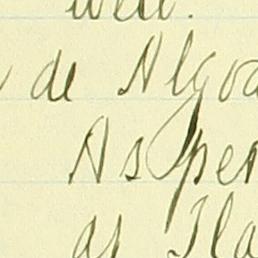 well.
de Algod
As per
of Fla